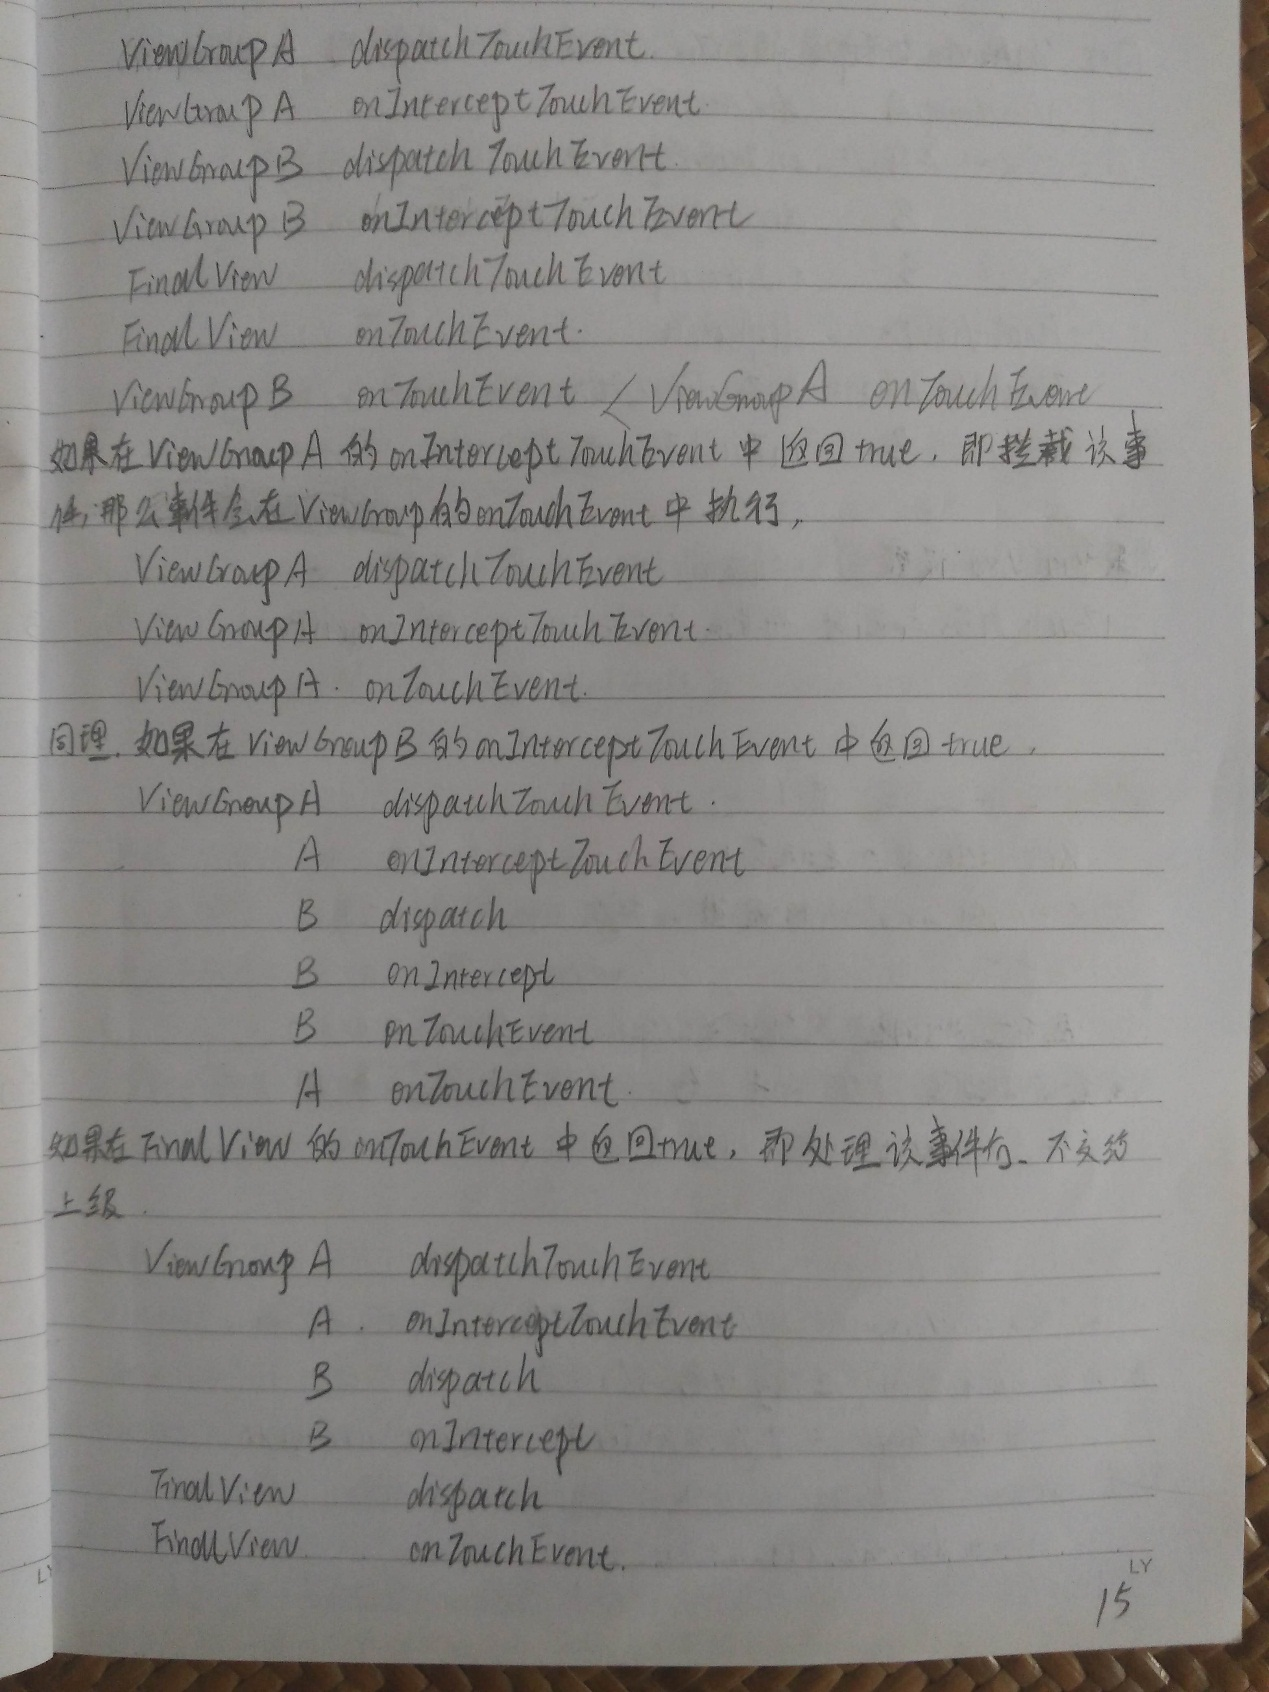 ViewGroup A dispatchTouchEvent.
ViewGroup A onInterceptTouchEvent.
ViewGroup B dispatch TouchEvent.
ViewGroup B onInterceptTouchEvent
Final View dispatchTouchEvent
Final View onTouchEvent.
ViewGroup B onTouchEvent < ViewGroup A onTouchEvent
如果在ViewGroup A 的onInterceptTouchEvent中返回true, 即拦截该事
件, 那么事件会在ViewGroup的onTouchEvent中执行,
ViewGroup A dispatchTouchEvent
ViewGroup A onInterceptTouchEvent.
ViewGroup A. onTouchEvent.
同理. 如果在ViewGroup B 的onInterceptTouchEvent中返回true,
ViewGroup A dispatchTouchEvent.
A onInterceptTouchEvent
B dispatch
B onIntercept
B onTouchEvent
A onTouchEvent.
如果在Final View 的onTouchEvent中返回true, 即处理该事件 不交给
上级.
ViewGroup A dispatchTouchEvent
A. onInterceptTouchEvent
B dispatch
B onIntercept
Final View dispatch
Final View onTouchEvent.
LY
15